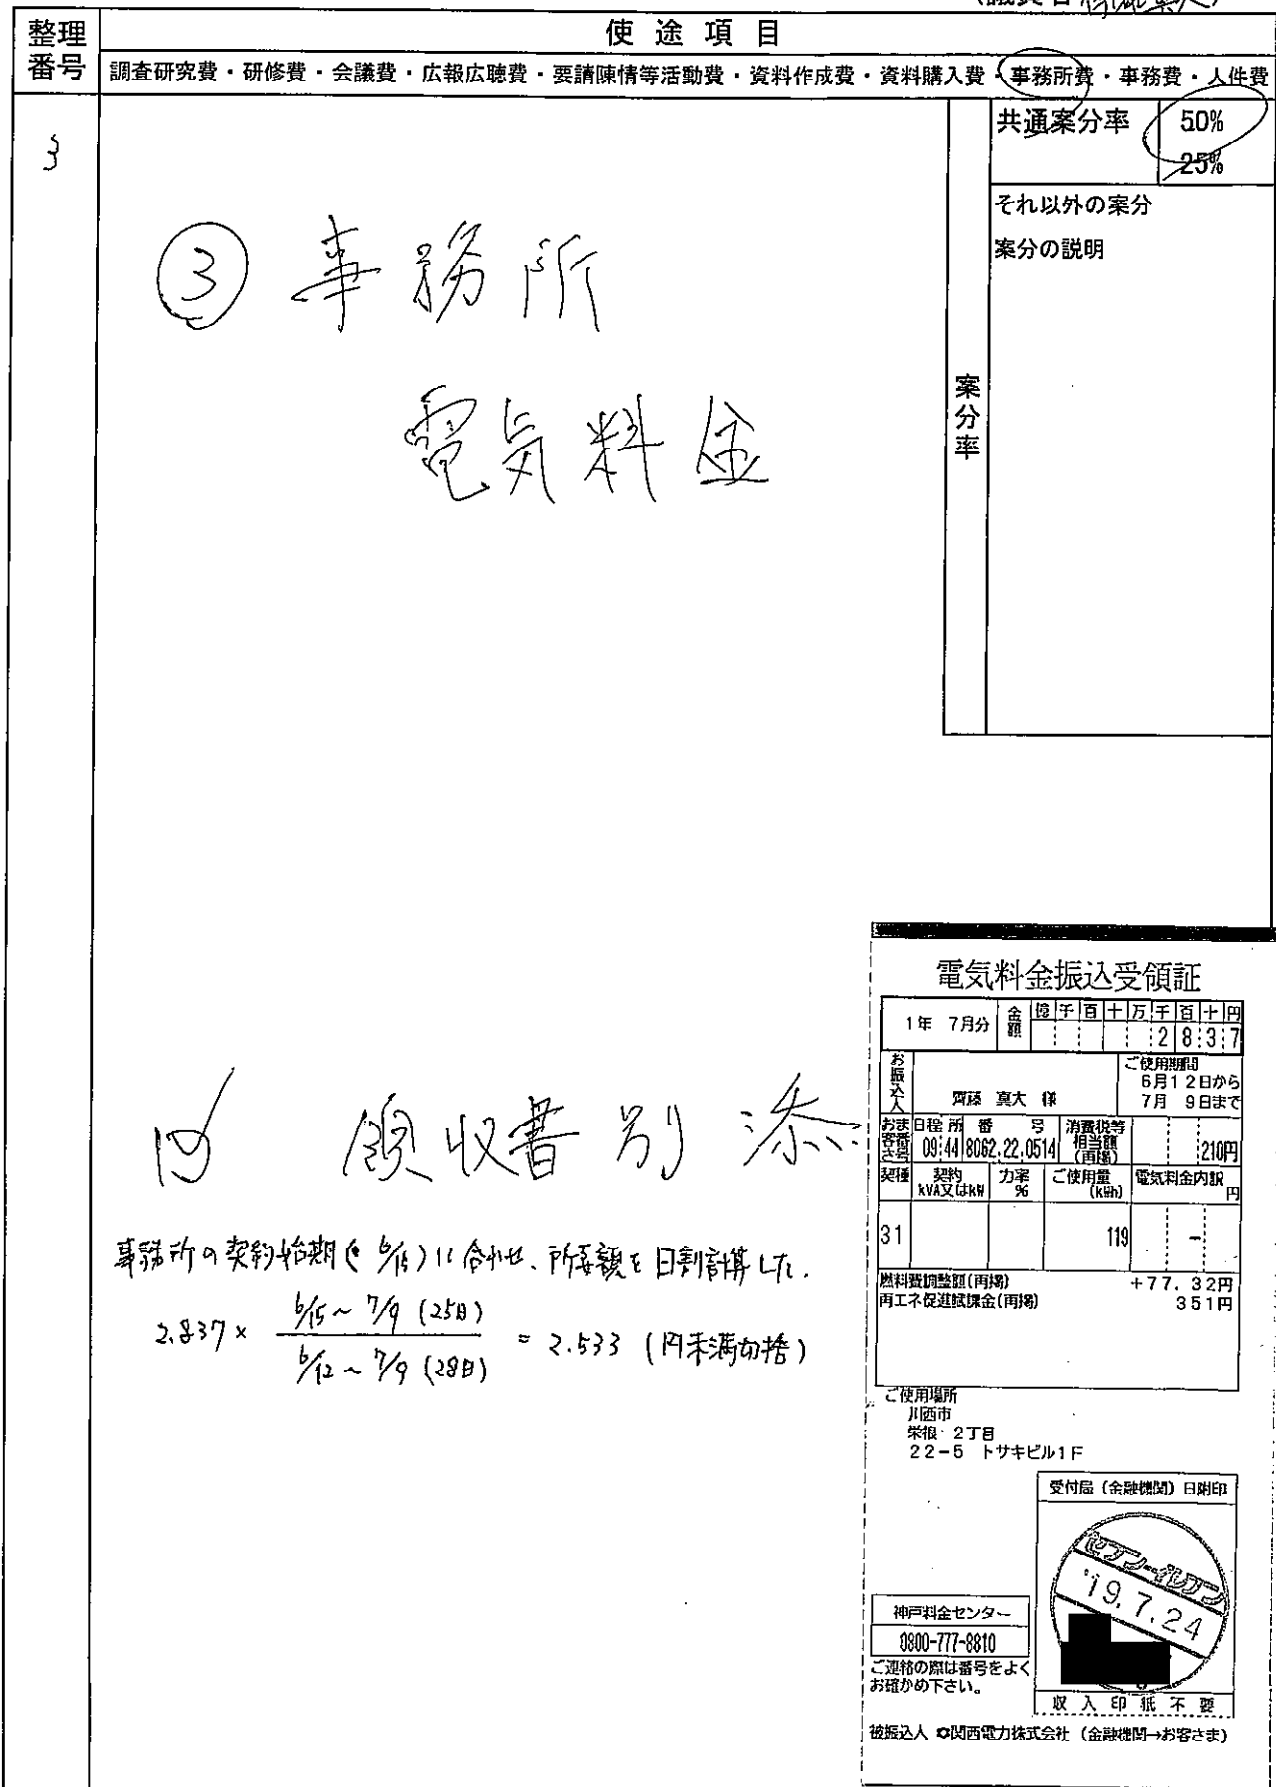 整理番号
使途項目
調査研究費・研修費・会議費・広報広聴費・要請陳情等活動費・資料作成費・資料購入費・事務所費・事務費・人件費
3
共通案分率 50%
25%
それ以外の案分
案分の説明
案分率
③ 事務所
電気料金
領収書別添
事務所の契約始期(6/15)に合わせ、所要額を日割計算した。
2.837× 6/15~7/9 (25日)
6/12~7/9 (28日)
= 2.533 (円未満切捨)
電気料金振込受領証
1年 7月分 金額 億千百十万千百十円
2 8 3 7
お振込人 齊藤 真大 様
ご使用期間
6月12日から
7月 9日まで
お客さま番号 日程 所 番 号 消費税等相当額(再掲)
09 44 8062.22.0514 210円
契種 契約kVA又はkW 力率% ご使用量(kWh) 電気料金内訳 円
31 119 -
燃料費調整額(再掲) +77.32円
再エネ促進賦課金(再掲) 351円
ご使用場所
川西市
栄根 2丁目
22-5 トサキビル1F
受付局(金融機関)日附印
セブン-イレブン
'19.7.24
神戸料金センター
0800-777-8810
ご連絡の際は番号をよく
お確かめ下さい。
収入印紙不要
被振込人 関西電力株式会社 (金融機関→お客さま)